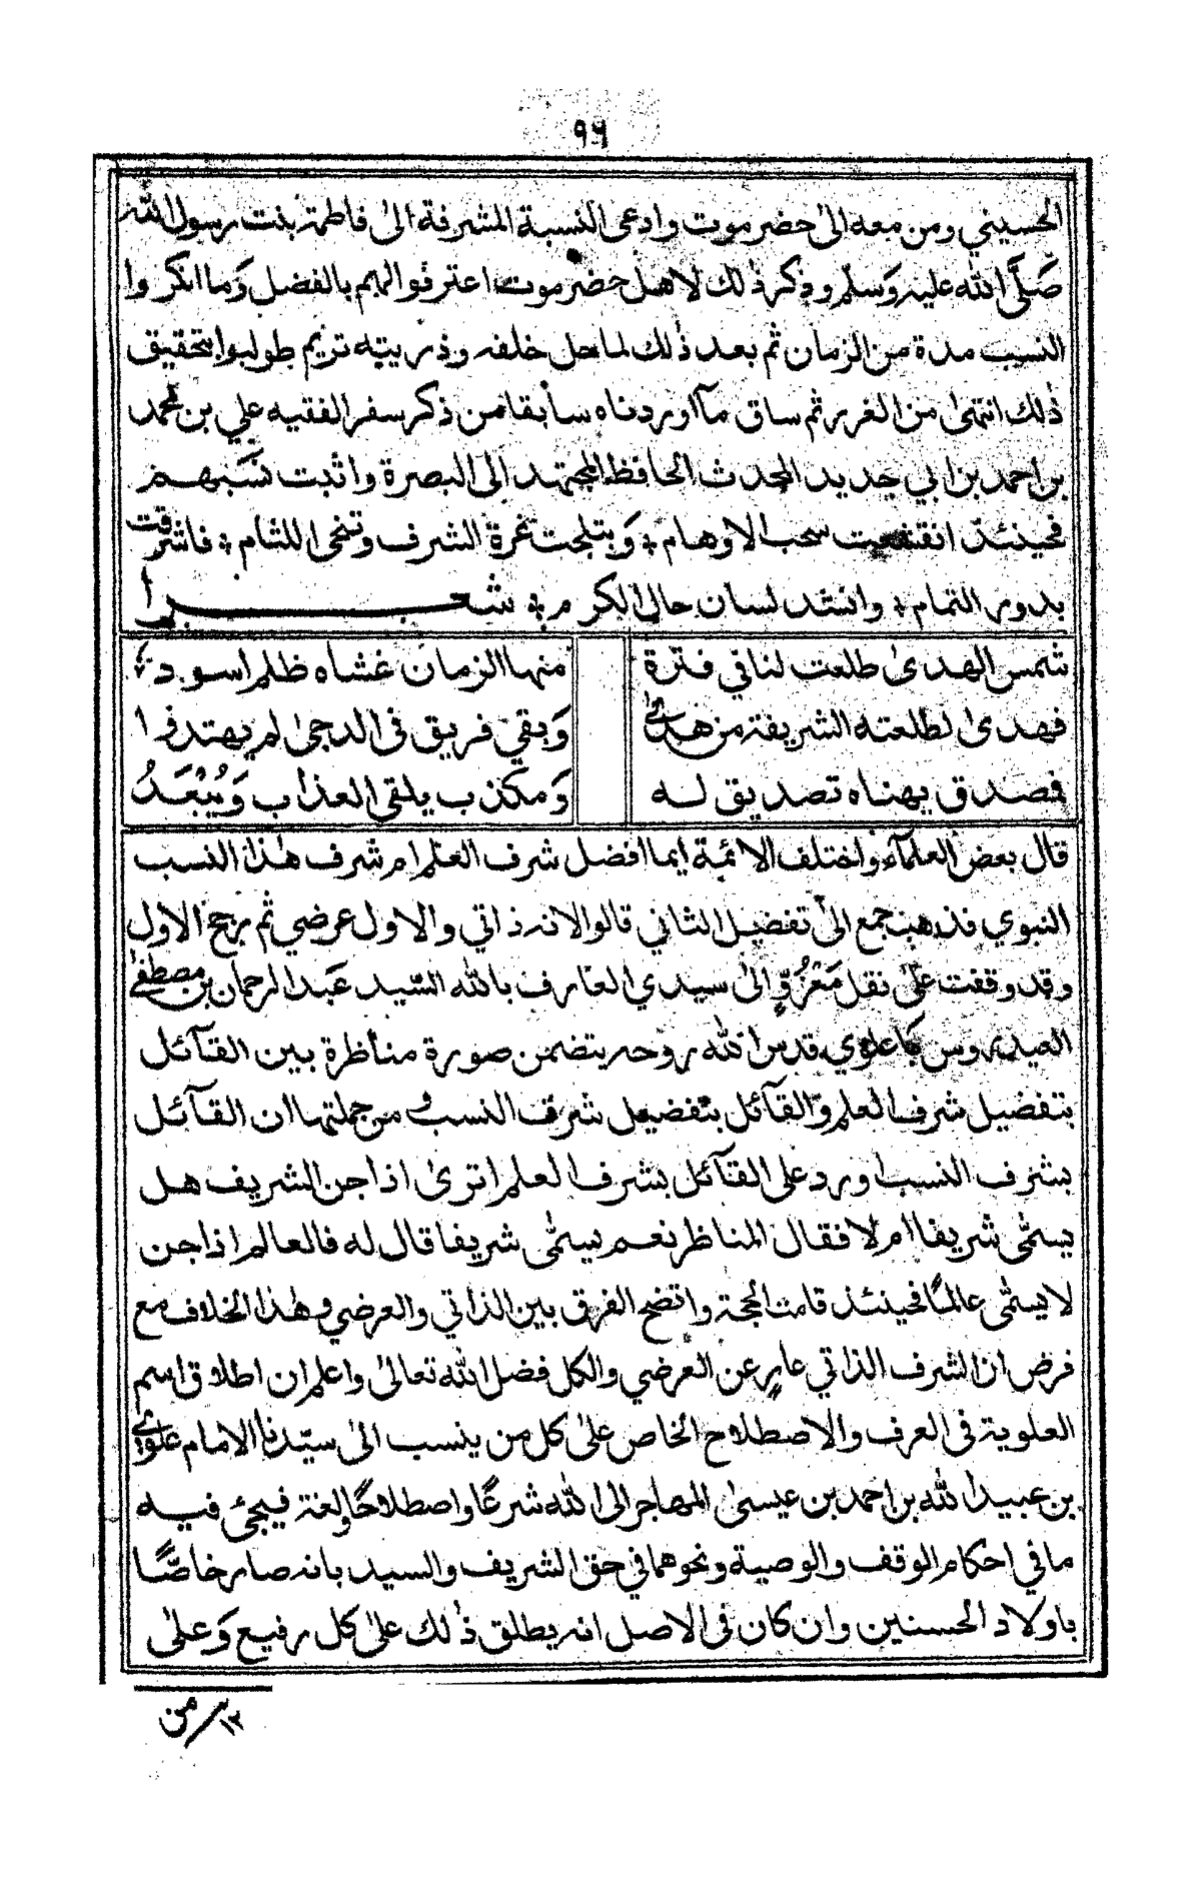 ٩٦
الحسيني ومن معه الىٰ حضرموت وادعى النسبة المشرفة الىٰ فاطمة بنت رسول الله
صَلَّى الله عليه وَسلَّم وذكر ذٰلك لاهل حضرموت اعترفوا لهم بالفضل وَما انكروا
النسب مدة من الزمان ثم بعد ذٰلك لما حل خلفه وذريته تريم طولبوا بتحقيق
ذٰلك انتهىٰ من الغرر ثم ساق مآ اوردناه سابقا من ذكر سفر الفقيه علي بن محمد
بن احمد بن ابي جديد المحدث الحافظ المجتهد الى البصرة واثبت نسَبهم
فحينئذ انقشعت سحب الاوهام ؛ وَتبلجت غرة الشرف وتنحى اللثام ؛ فاشرقت
بدور التمام ؛ وانشد لسان حال الكرم ؛ شعرا
شمس الهدىٰ طلعت لنا في فترة منها الزمان غشاه ظلم اسود ؛
فهدىٰ لطلعته الشريفة من هدىٰ وَبقي فريق فى الدجىٰ لم يهتدوا
فمصدق يهناه تصديق له وَمكذب يلقى العذاب وَيُبْعَدُ
قال بعض العلمآء واختلف الائمة ايما افضل شرف العلم ام شرف هٰذا النسب
النبوي فذهب جمع الىٰ تفضيل الثاني قالوا لانه ذاتي والاول عرضي ثم رجح الاول
وقد وقفت علىٰ نقل مَعْزُوٍّ الىٰ سيدي العارف بالله السّيد عَبد الرحمان بن مصطفىٰ
العيدروس باعلوي قدس الله روحه يتضمن صورة مناظرة بين القآئل
بتفضيل شرف العلم والقآئل بتفضيل شرف النسب و من جملتها ان القآئل
بشرف النسب اورد على القآئل بشرف العلم اترىٰ اذا جن الشريف هل
يسمّٰى شريفا ام لا فقال المناظر نعم يسمّٰى شريفا قال له فالعالم اذا جن
لا يسمّٰى عالمًا فحينئذ قامت الحجة واتضح الفرق بين الذاتي والعرضي وهٰذا الخلاف مع
فرض ان الشرف الذاتي عارٍ عن العرضي والكل فضل الله تعالىٰ واعلم ان اطلاق اسم
العلوية فى العرف والاصطلاح الخاص علىٰ كل من ينسب الىٰ سيّدنا الامام علوي
بن عبيد الله بن احمد بن عيسىٰ المهاجر الى الله شرعًا واصطلاحًا ولغة فيجئ فيه
ما في احكام الوقف والوصية ونحوهما في حق الشريف والسيد بانه صار خاصًّا
باولاد الحسنين وان كان فى الاصل انه يطلق ذٰلك علىٰ كل رفيع وَعلىٰ
من